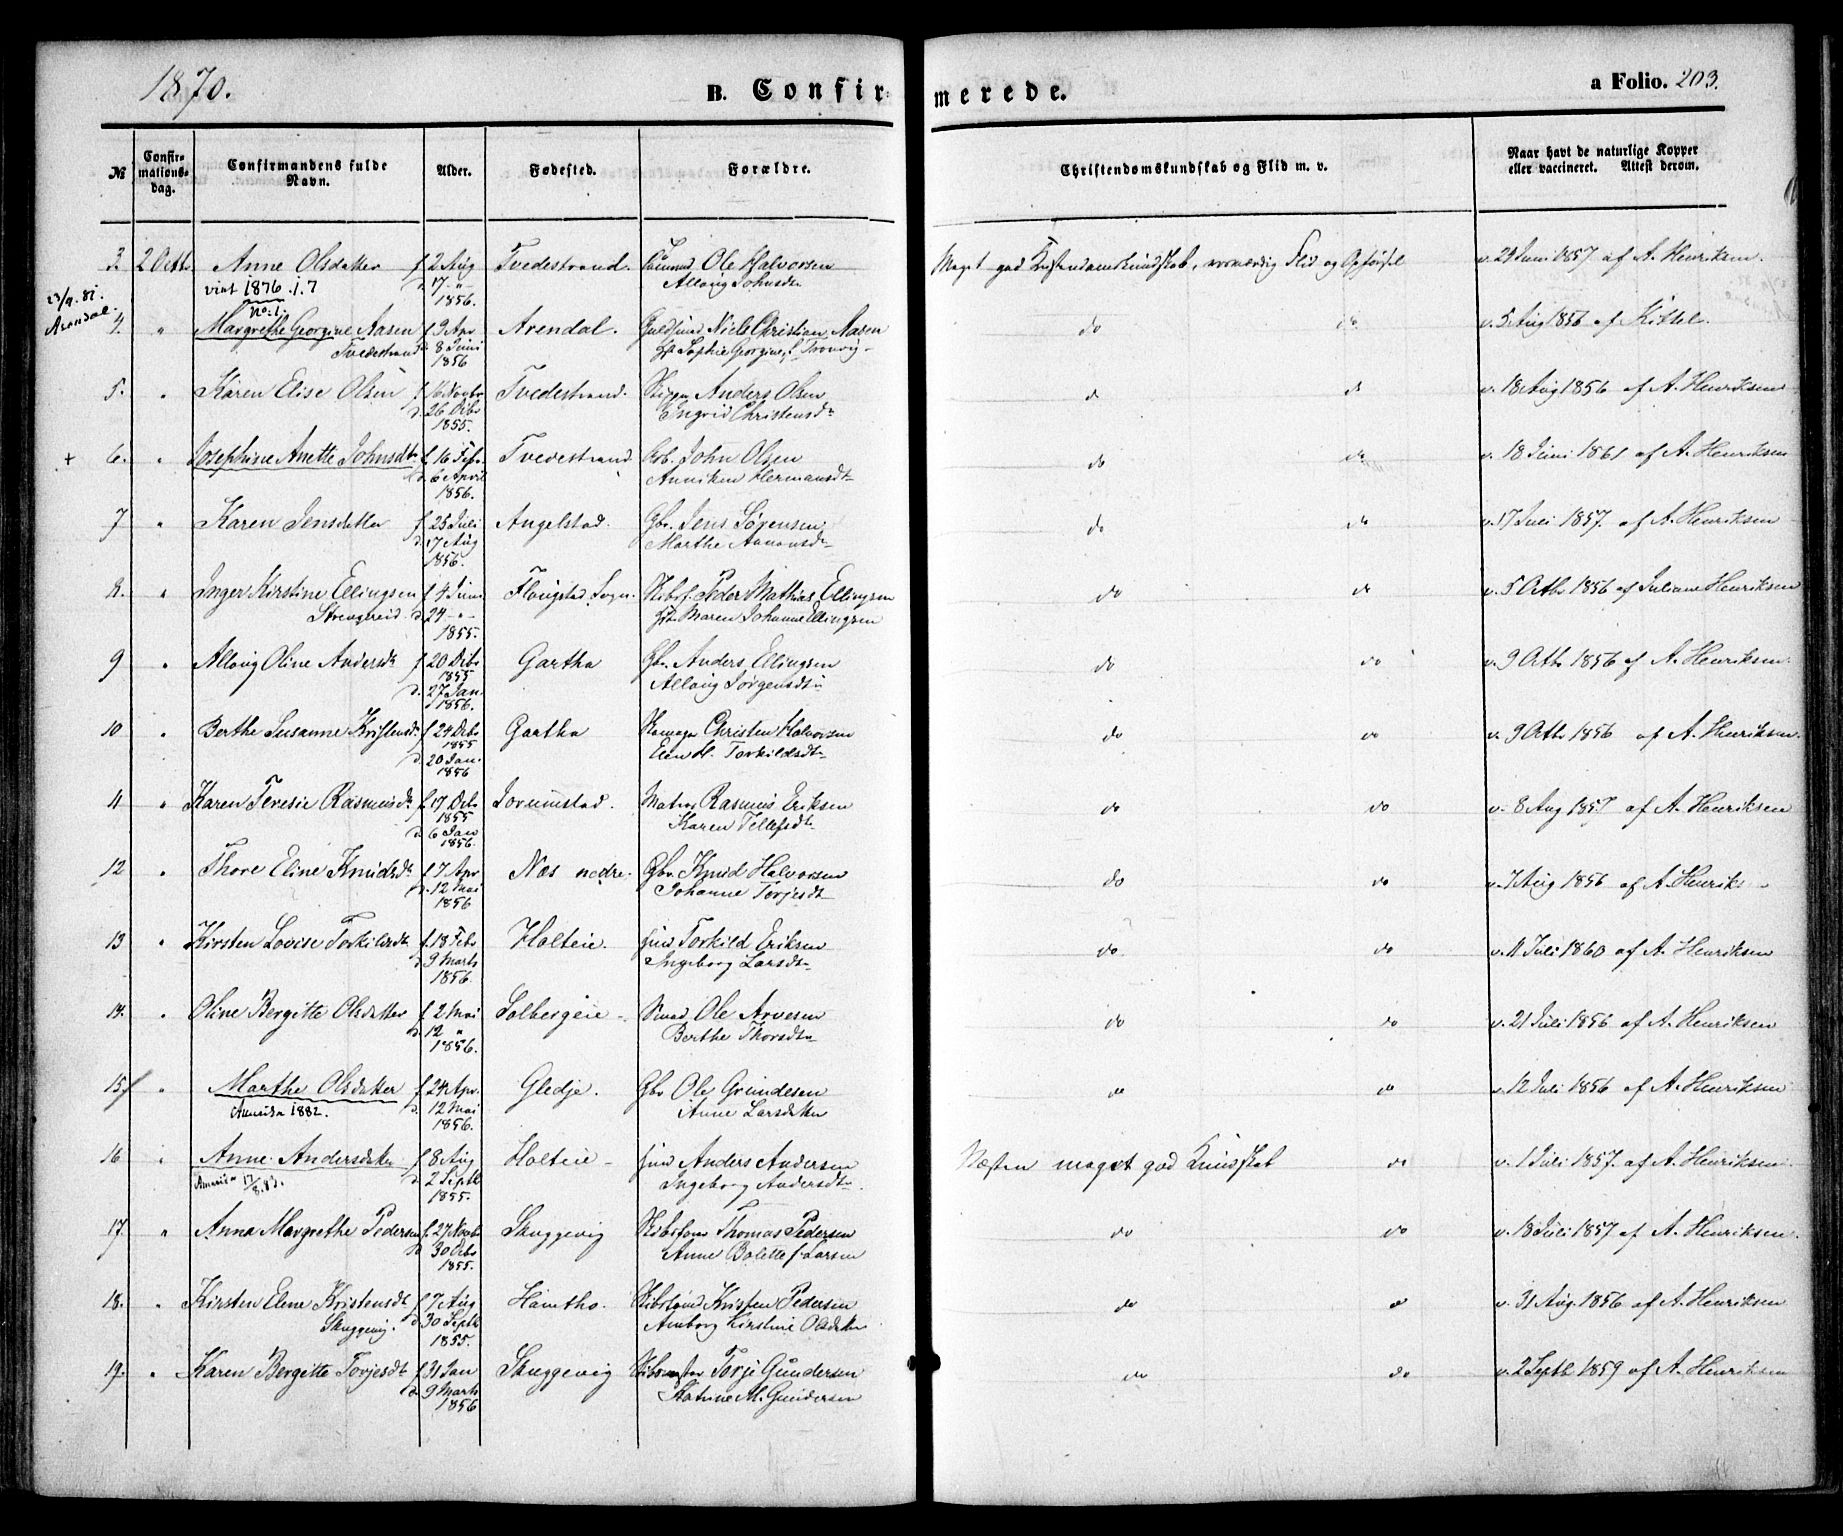 1870.
B. Confirmerede.
a Folio. 203.
№ Confirmationsdag. Confirmandens fulde Navn. Alder. Fødested. Forældre. Christendomskundskab og Flid m. v. Naar havt de naturlige Kopper eller vaccineret. Attest derom.
3. 2 Octb. Anne Olsdatter f. 2 Aug Tvedestrand. Ole Halvorsen Meget god Kristendomskundskab, Flid og Opførsel v. 29 Juni 1857 af A. Henriksen.
viet 1876. 1.7 d. 17 - " - Allaug Johnsdt
1856.
23/9. 81. Arendal. No: 1.
4. " Margrethe Georgine Aasen f. 9 Apr Arendal. Guldsmed Niels Christian Aasen do do v. 5 Aug 1856 af Kittel.
Tvedestrand d. 8 Juni Sophie Georgine f. Tronvig
1856
5. " Karen Elise Olsen f. 16 Novbr Tvedestrand. Skipper Anders Olsen do do v. 18 Aug 1856 af A. Henriksen
d. 26 Dcbr Ingrid Christensdr
1855.
+ 6. " Josephine Anette Johnsdt f. 16 Febr Tvedestrand Arb. John Olsen do do v. 18 Juni 1861 af A. Henriksen
d. 6 April Anniken Hermansdt
1856.
7 " Karen Jensdatter f. 25 Juli Angelstad. Gbr. Jens Sørensen do do v. 17 Juli 1857. af A. Henriksen
d. 17 Aug Marthe Aanonsdr
1856.
8. " Inger Kirstine Ellingsen f. 4 Juni Flougstad Sogn. Skibsf. Peder Mathias Ellingsen do do v. 5 Octb 1856 af Juliane Henriksen
Strengereid. d. 24 - " - Maren Johanne Ellingsen
1855.
9 " Allaug Oline Andersdr f. 20 Dcbr Gartha Gbr. Anders Ellingsen do do v. 9 Octb 1856 af A. Henriksen
1855
d. 27 Jan. Allaug Jørgensdtr
1856.
10 " Berthe Susanne Kristensdr f. 24 Dcbr Gartha Christen Halvorsen do do v. 9 Octb 1856 af A. Henriksen.
1855
d. 20 Jan. Elen H. Torkildsdt
1856
11 " Karen Teresie Rasmusdr f. 17 Dcbr Jorunstad. Matros Rasmus Eriksen do do v. 8 Aug 1857 af A. Henriksen
1855
d. 6 Jan Karen Tellefsdt
1856.
12 " Thore Eline Knudsdt f. 7 Apr Næs nedre. Gbr. Knud Halvorsen do do v. 7 Aug 1856 af A. Henriks-
d. 12 Mai Johanne Torjesdt
1856
13 " Kirsten Lovise Torkildsdt f. 18 Febr Holteie. Torkild Eriksen do do v. 11 Juli 1860 af A. Henriksen
d. 9 Marts Ingeborg Larsdt
1856.
14. " Oline Bergitte Olsdatter f. 2 Mai Solbergeie - Ole Arvesen do do v. 21 Juli 1856 af A. Henriksen
d. 12 " Berthe Thorsdt
1856.
15 " Marthe Olsdatter f. 24 Apr. Gledje. Gbr Ole Gundesen do do v. 12 Juli 1856 af A. Henriksen
Amerika 1882. d. 12 Mai Anne Larsdatter
1856.
16 " Anne Andersdatter f. 8 Aug Holteie - Anders Andersen Næsten meget god Kundskab do v. 1 Juli 1857. af A. Henriksen.
Amerika 17/8. 83. d. 2 Septb Ingeborg Andersdt
1855.
17. " Anna Margrethe Pedersen f. 27 Novb Skuggevig Thomas Pedersen do do v. 18 Juli 1857 af A. Henriksen.
d. 30 Dcbr Anne Bolette f. Larsen
1855.
18. " Kirsten Elene Kristensdt f. 7 Aug Hantho. Kristen Pedersen do do v. 31 Aug. 1856 af A. Henriksen
Skuggevig. d. 30 Septb Amborg Kirstine Olsdatter
1855.
19. " Karen Bergitte Torjesdt f. 31 Jan Skuggevig Torje Gundersen do do v. 2 Septb 1859 af A. Henriksen
d. 9 Marts Katrine M. Gundersen
1856